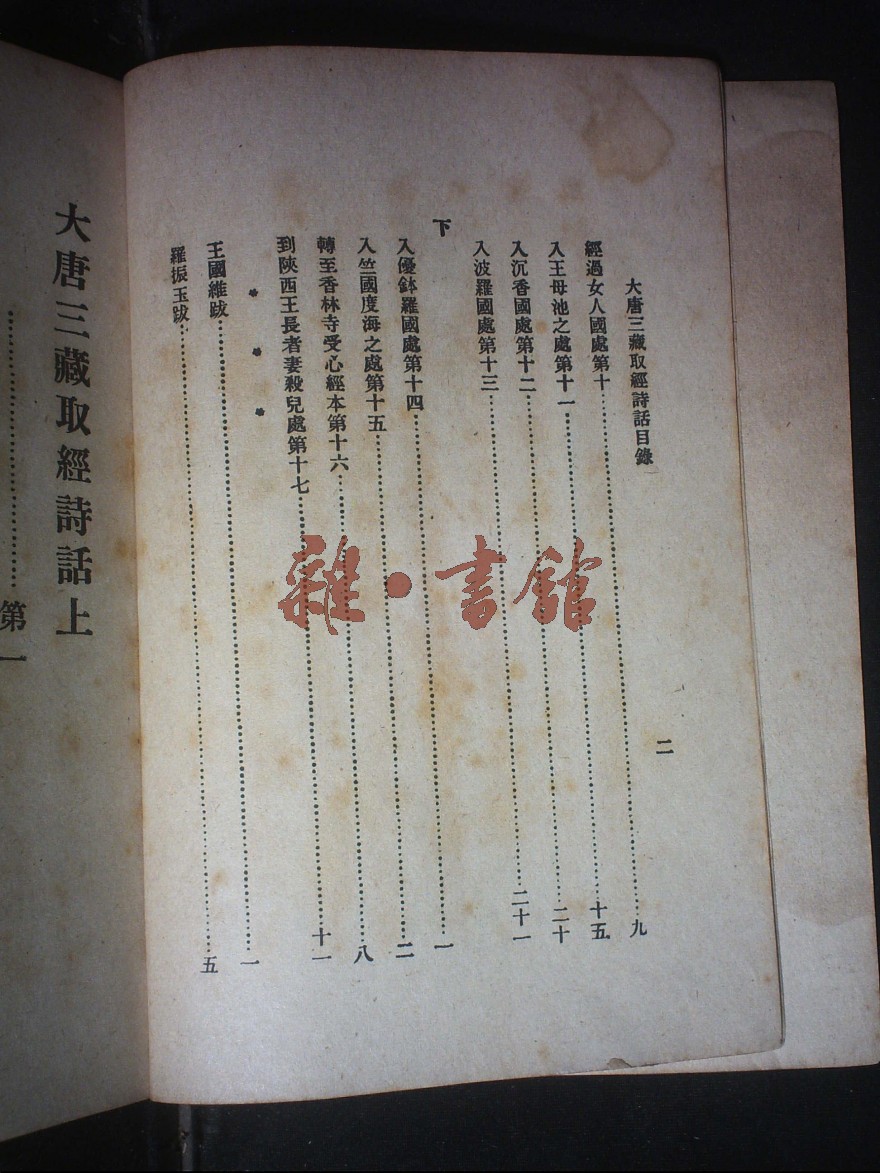 大唐三藏取經詩話目錄 二
經過女人國處第十……九
入王母池之處第十一……十五
入沉香國處第十二……二十
入波羅國處第十三……二十一
下
入優鉢羅國處第十四……一
入竺國度海之處第十五……二
轉至香林寺受心經本第十六……八
到陝西王長者妻殺兒處第十七……十一
* * *
王國維跋……一
羅振玉跋……五
大唐三藏取經詩話上
……第一
雜·書館